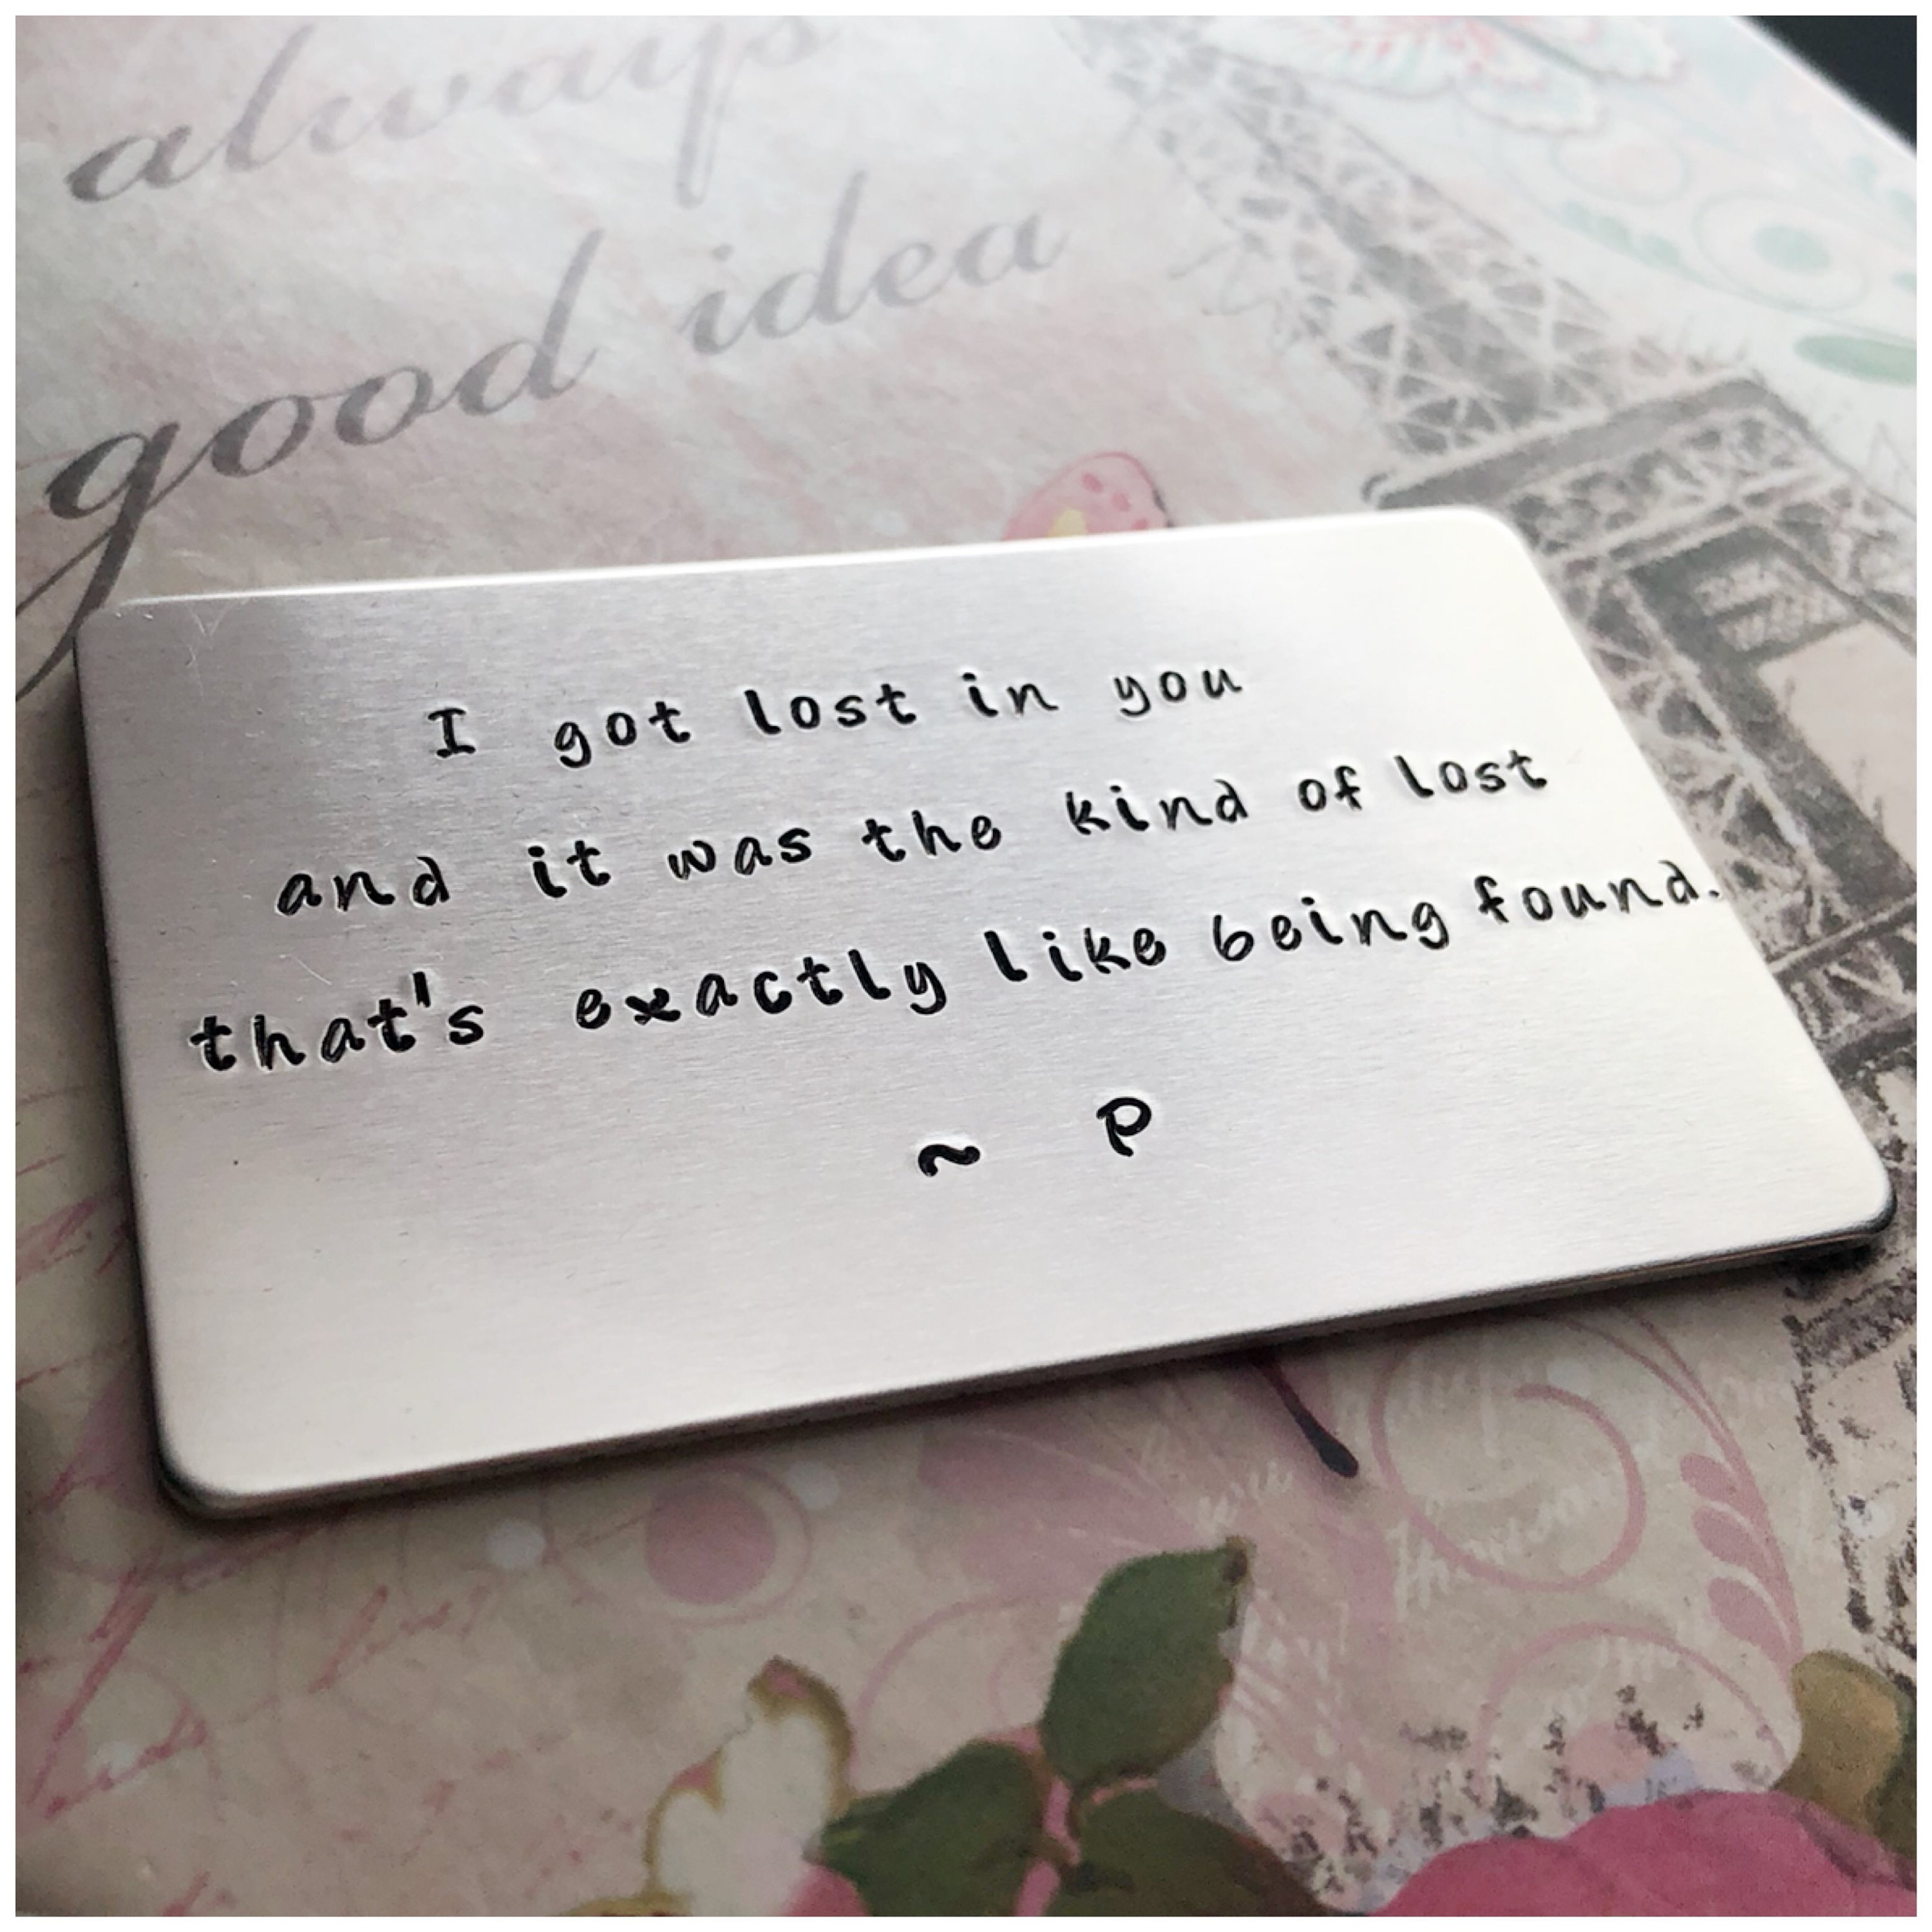 always
good idea
I got lost in you
and it was the kind of lost
that's exactly like being found.
~ P